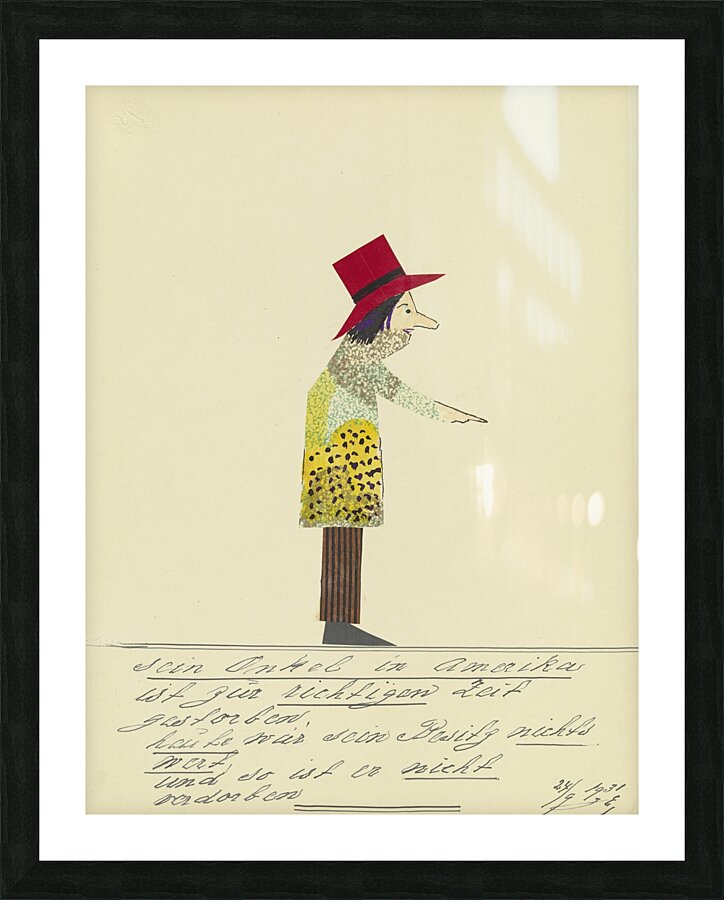 sein Onkel in Amerika
ist zur richtigen Zeit
gestorben,
heute wär sein Besitz nichts
wert,
und so ist er nicht
verdorben
24/9 1931